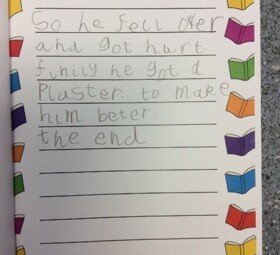 So he fell over
and got hurt.
finily he got a
Plaster to make
him beter.
the end